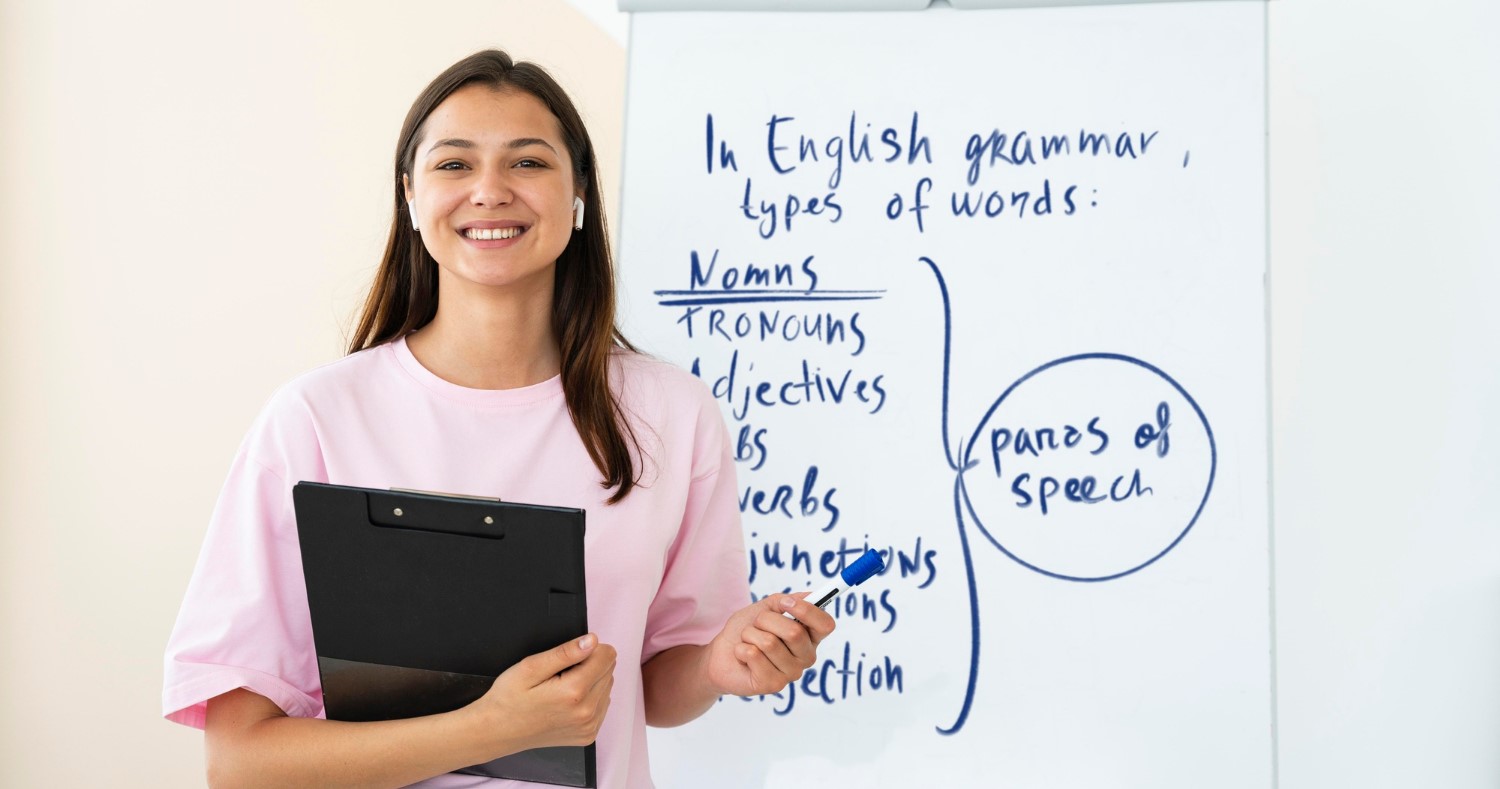 In English grammar,
types of words:
Nouns
PRONOUns
Adjectives
bs
verbs
junctions
ions
jection
parts of
speech